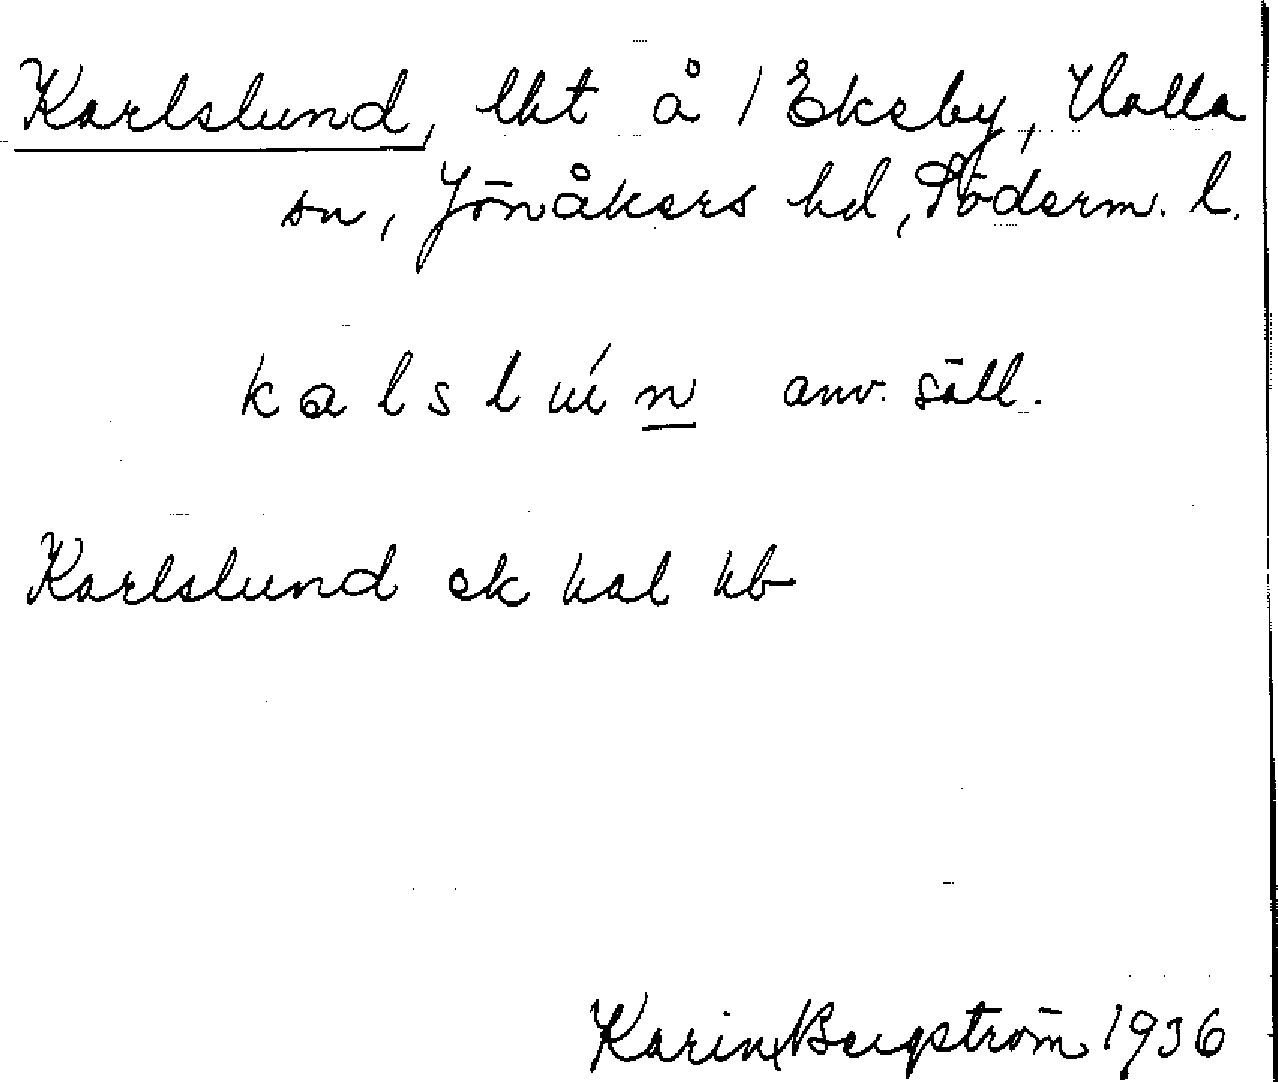 Karlslund, lht å 1 Ekeby, Halla
sn, Jönåkers hd, Söderm. l.
kalslún anv. säll.
Karlslund ek hal kb
Karin Bergström 1936